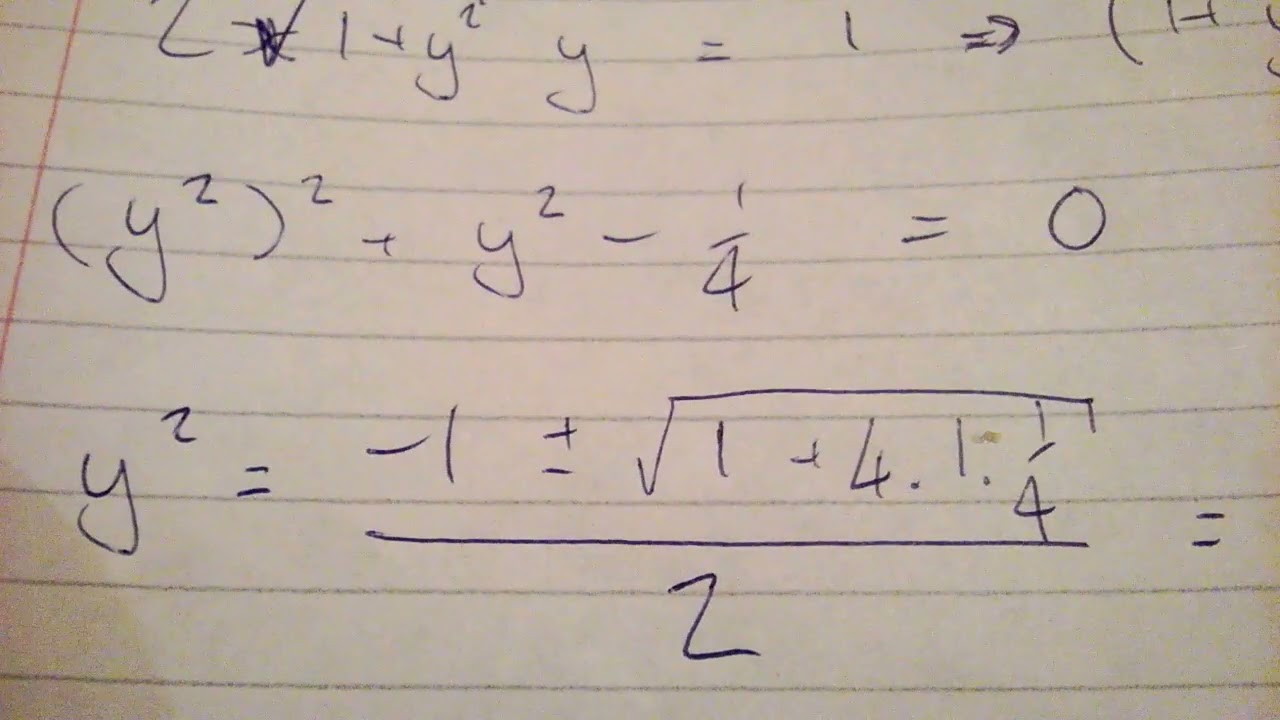 2 √1+y² y = 1 ⇒ (1+
(y²)² + y² - 1/4 = 0
y² = (-1 ± √(1 + 4.1.1/4))/2 =